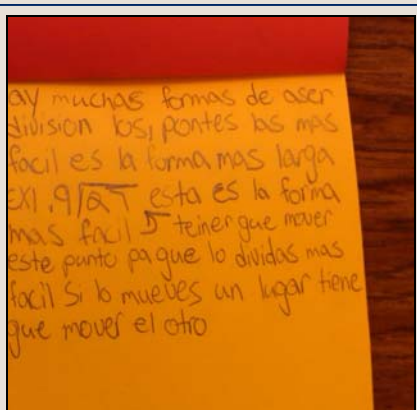 ay muchas formas de aser
division los, pontes las mas
facil es la forma mas larga
EX1 .9√27 esta es la forma
mas facil 5 teiner que mover
este punto pa que lo dividas mas
facil Si lo mueves un lugar tiene
que mover el otro